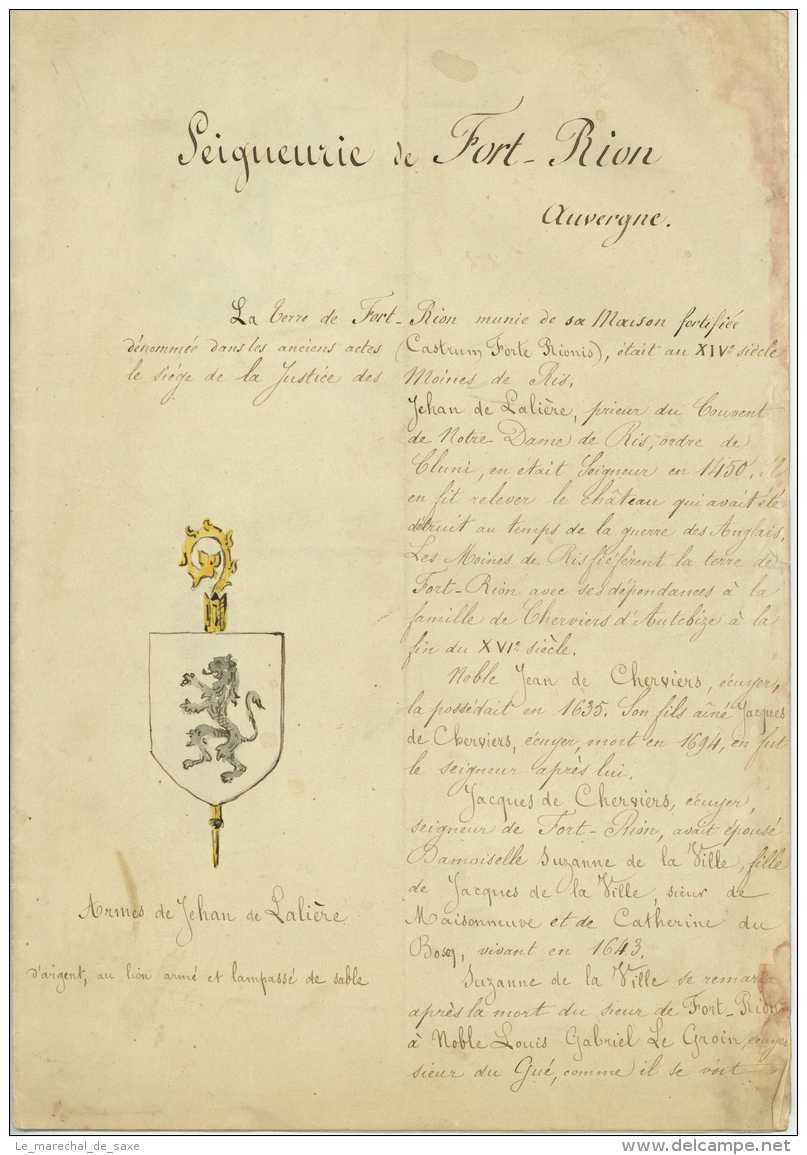 Seigneurie de Fort-Rion
Auvergne.
La terre de Fort-Rion munie de sa Maison fortifiée
dénommée dans les anciens actes (Castrum Forte Rionis), était au XIVe siècle
le siége de la Justice des Moines de Ris.
Jehan de Lalière, prieur du Couvent
de Notre Dame de Ris, ordre de
Cluni, en était Seigneur en 1450. Il
en fit relever le château qui avait été
détruit au temps de la guerre des Anglais.
Les Moines de Ris fiéfèrent la terre de
Fort-Rion avec ses dépendances à la
famille de Cherviers d'Autebize à la
fin du XVIe siècle.
Noble Jean de Cherviers, écuyer,
la possédait en 1635. Son fils aîné Jacques
de Cherviers, écuyer, mort en 1694, en fut
le seigneur après lui.
Jacques de Cherviers, écuyer,
seigneur de Fort-Rion, avait épousé
Damoiselle Suzanne de la Ville, fille
de Jacques de la Ville, sieur de
Maisonneuve et de Catherine du
Boscq, vivant en 1643.
Suzanne de la Ville se remaria
après la mort du sieur de Fort-Rion
à Noble Louis Gabriel Le Groin, écuyer
sieur du Gué, comme il se voit
Armes de Jehan de Lalière
d'argent, au lion armé et lampassé de sable
Le_marechal_de_saxe
delcampe.net